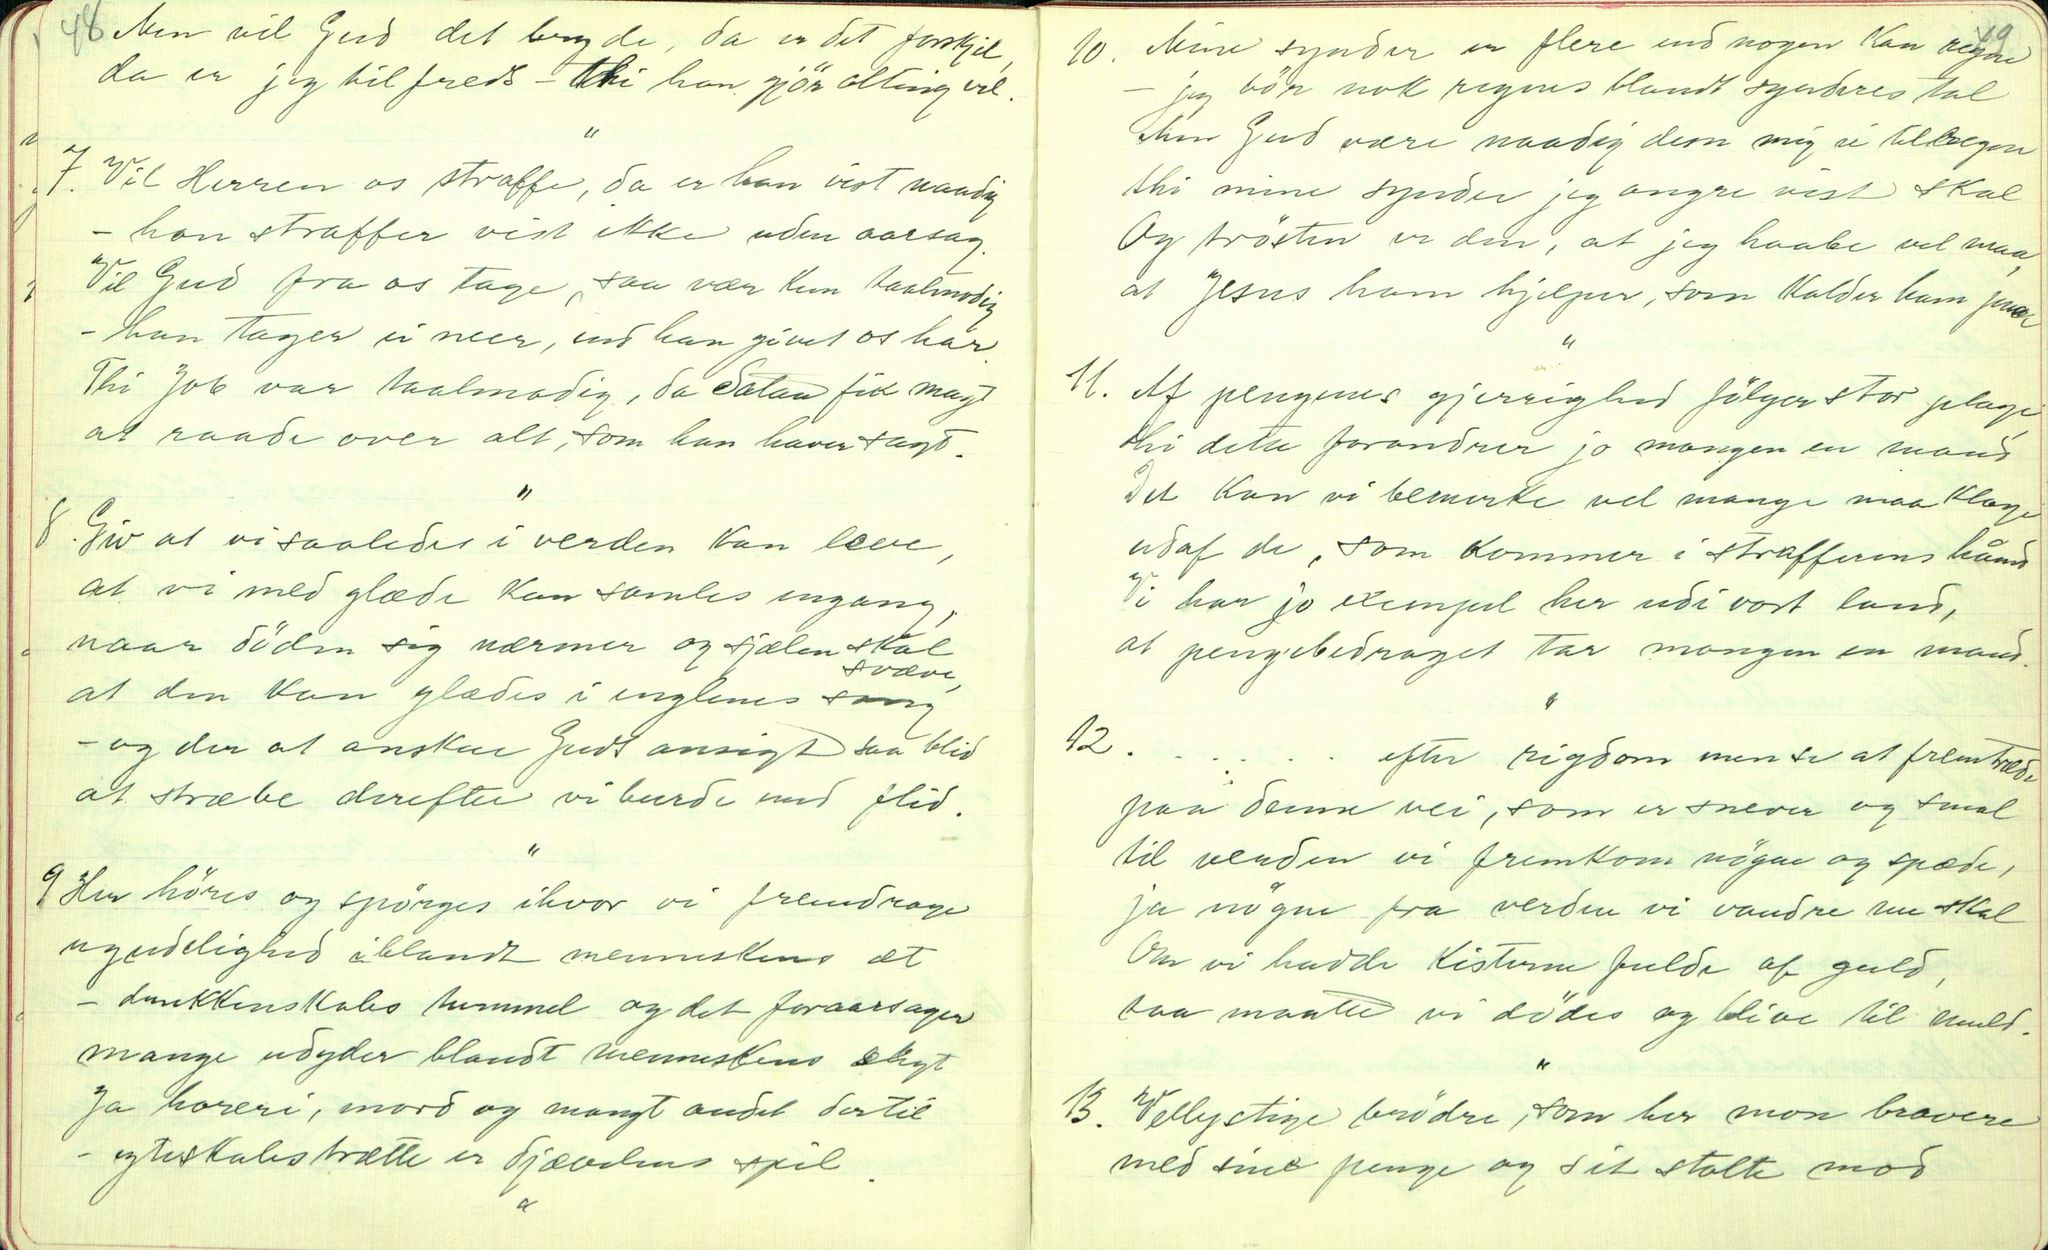 48
Men vil Gud det bryde, da er det forskjel,
da er jeg tilfreds - thi han gjör alting vel.
"
7. Vil Herren os straffe, da er han vist naadig
- han straffer vist ikke uden aarsag.
Vil Gud fra os tage, saa vær kun taalmodig
- han tager ei meer, end han givet os har.
Thi Job var taalmodig, da Satan fik magt
at raade over alt, som han haver sagt.
"
8. Giv at vi saaledes i verden kan leve,
at vi med glæde kan samles engang,
naar döden sig nærmer og sjælen skal
svæve,
at den kan glædes i englenes sang
- og der at anskue Guds ansigt saa blid
at stræbe derefter vi burde med flid.
"
9 Her höres og spörges ihvor vi fremdrage
ugudelighed iblandt menneskens æt
- drukkenskabs tummel og det foraarsager
mange udyder blandt menneskens slegt
Ja horeri, mord og mangt andet dertil
- egteskabstrætte er djævelens spil.
"
49
10. Mine synder er flere end nogen kan regne
- jeg bör nok regnes blandt synderes tal
Men Gud være naadig dem mig ei tilregne
thi mine synder jeg angre vist skal
Og trösten er den, at jeg haabe vel maa,
at Jesus ham hjelper, som kalder ham paa
"
11. Af pengenes gjerrighed fölger stor plage,
thi dette forandrer jo mangen en mand
Det kan vi bemerke vel mange maa klage
udaf de, som kommer i strafferens hånd
Vi har jo exempel her udi vort land,
at pengebedraget tar mangen en mand.
"
12. . . . . . . efter rigdom men se at fremtræde
paa denne vei, som er snever og smal
til verden vi fremkom nögne og spæde,
ja nögne fra verden vi vandre nu skal
Om vi hadde kisterne fulde af guld,
saa maatte vi dödes og blive til muld.
"
13. Vellystige brödre, som her mon bravere
med sine penge og sit stolte mod